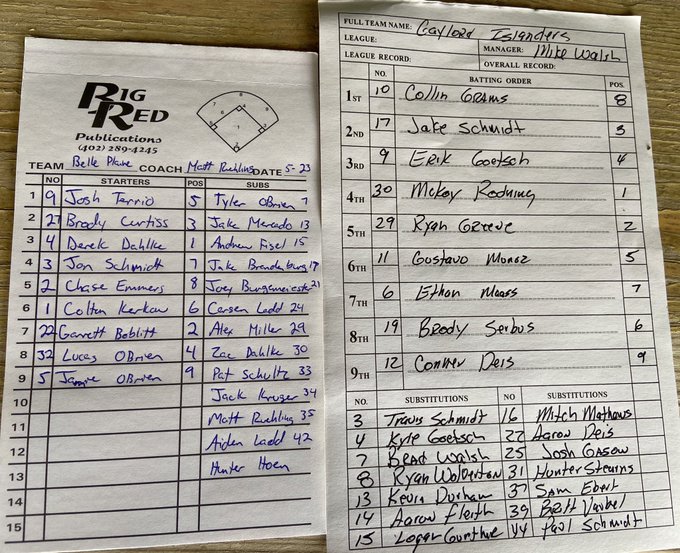 BIG RED
Publications
(402) 289-4245
7 8 9
6 4
5 3
1
2
TEAM Belle Plaine COACH Matt Ruehling DATE 5-23
NO STARTERS POS SUBS
1 9 Josh Terrio 5 Tyler OBrien 7
2 27 Brody Curtiss 3 Jake Mercado 13
3 4 Derek Dahlke 1 Andrew Fisel 15
4 3 Jon Schmidt 7 Jake Brandenburg 17
5 2 Chase Emmers 8 Joey Burgmeister 21
6 1 Colton Kerkow 6 Carsen Ladd 24
7 22 Garrett Boblitt 2 Alex Miller 29
8 32 Lucas OBrien 4 Zac Dahlke 30
9 5 Jamie OBrien 9 Pat Schultz 33
10 Jack Kruger 34
11 Matt Ruehling 35
12 Aiden Ladd 42
13 Hunter Hoen
14
15
FULL TEAM NAME: Gaylord Islanders
LEAGUE: MANAGER: Mike Walsh
LEAGUE RECORD: OVERALL RECORD:
NO. BATTING ORDER POS.
1ST 10 Collin Grams 8
2ND 17 Jake Schmidt 3
3RD 9 Erik Goetsch 4
4TH 30 McKoy Rodning 1
5TH 29 Ryan Greeve 2
6TH 11 Gustavo Munoz 5
7TH 6 Ethan Maass 7
8TH 19 Brody Serbus 6
9TH 12 Conner Deis 9
NO. SUBSTITUTIONS NO SUBSTITUTIONS
3 Travis Schmidt 16 Mitch Mathews
4 Kyle Goetsch 22 Aaron Deis
7 Brad Walsh 25 Josh Gasow
8 Ryan Wolverton 31 Hunter Stearns
13 Kevin Durham 37 Sam Ebert
14 Aaron Fleith 39 Britt
15 Logan 44 Paul Schmidt